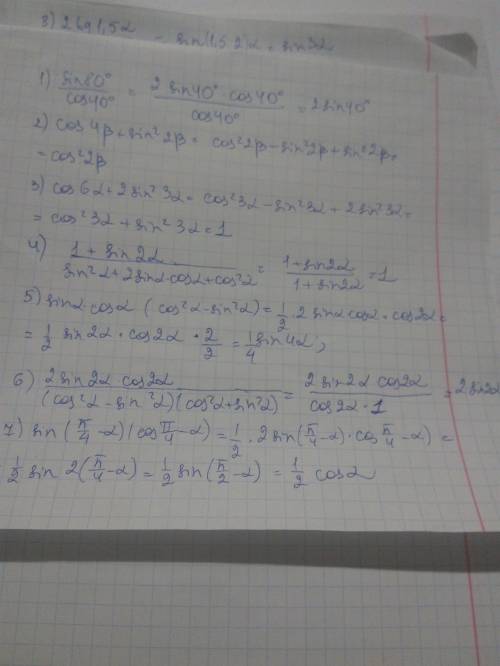 1) sin80°/cos40° = 2 sin40° · cos40°/cos40° = 2 sin40°
2) cos4β + sin²2β = cos²2β - sin²2β + sin²2β =
= cos²2β
3) cos6α + 2 sin²3α = cos²3α - sin²3α + 2 sin²3α =
= cos²3α + sin²3α = 1
4) 1 + sin2α/sin²α + 2 sinα·cosα + cos²α = 1 + sin2α/1 + sin2α = 1
5) sinα cosα (cos²α - sin²α) = 1/2 · 2 sinα cosα · cos2α =
= 1/2 sin2α · cos2α · 2/2 = 1/4 sin4α;
6) 2 sin2α cos2α/(cos²α - sin²α)(cos²α + sin²α) = 2 sin2α cos2α/cos2α · 1 = 2 sin2α
7) sin(π/4 - α)(cos π/4 - α) = 1/2 · 2 sin(π/4 - α) · cos π/4 - α) =
1/2 sin 2(π/4 - α) = 1/2 sin(π/2 - α) = 1/2 cosα